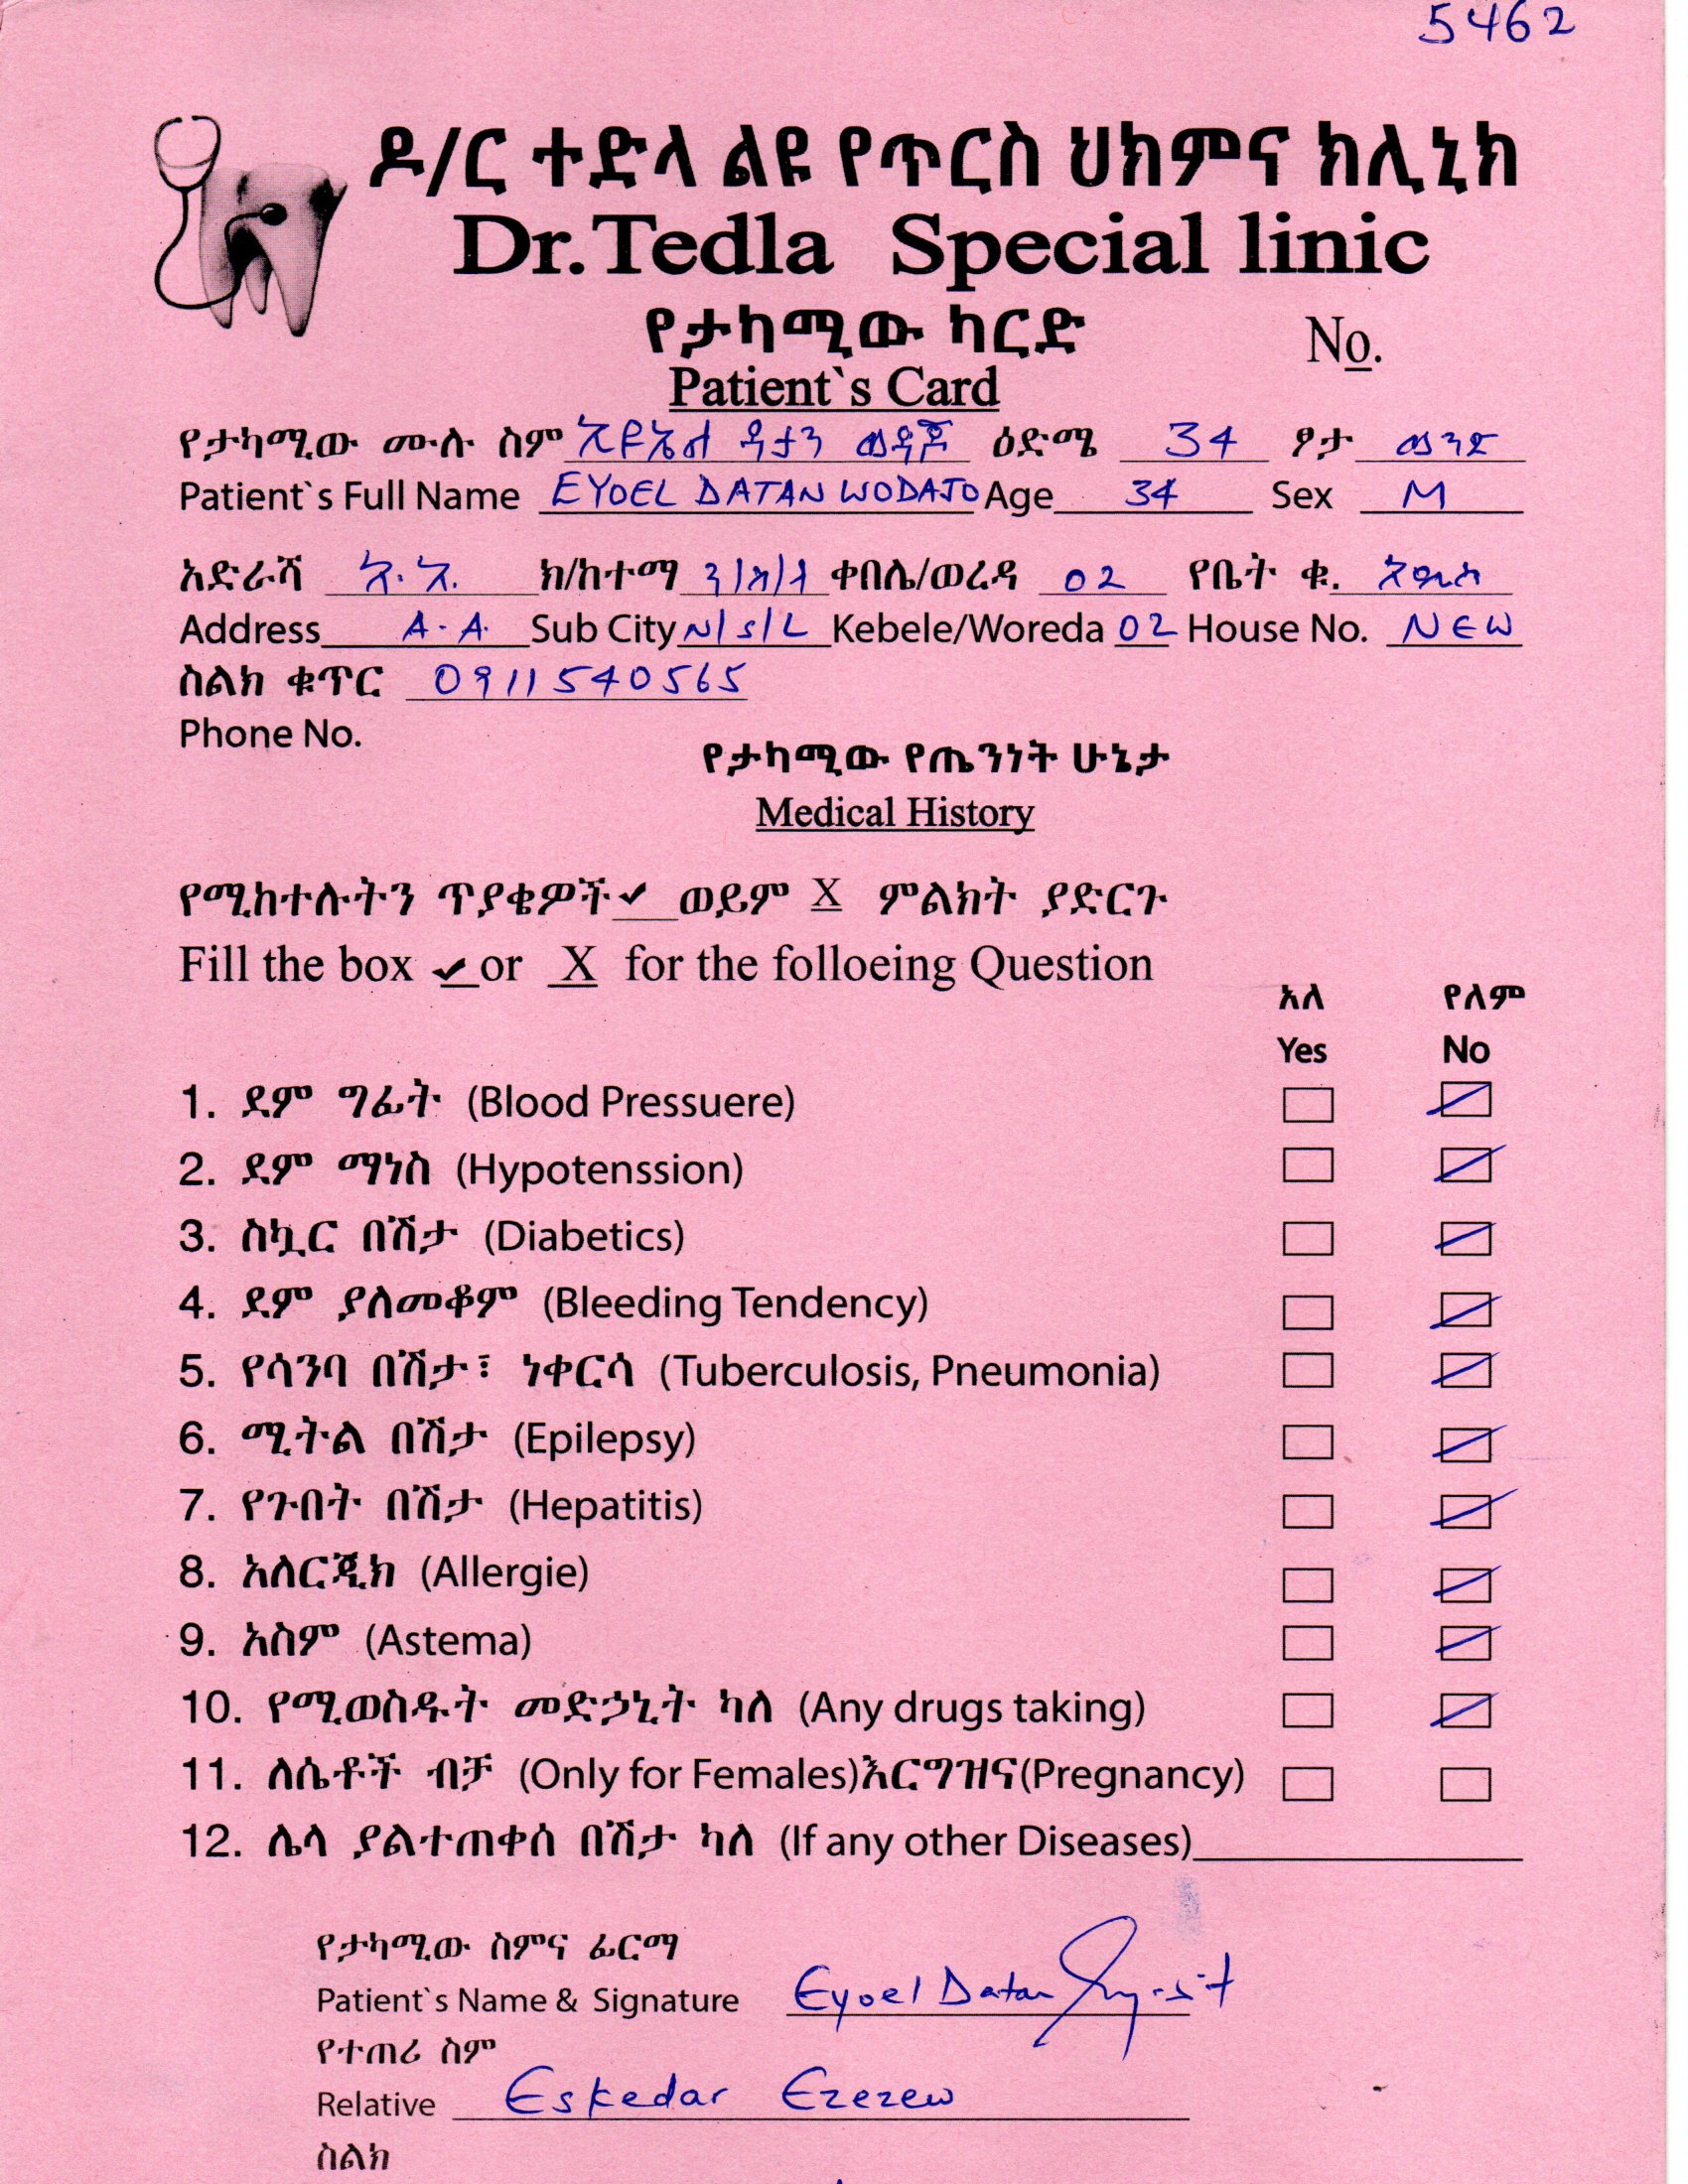 5462
ዶ/ር ተድላ ልዩ የጥርስ ህክምና ክሊኒክ
Dr.Tedla Special linic
የታካሚው ካርድ No.
Patient`s Card
የታካሚው ሙሉ ስም ኢዮኤል ዳታን ወዳጆ ዕድሜ 34 ፆታ ወንድ
Patient`s Full Name EYOEL DATAN WODAJO Age 34 Sex M
አድራሻ አ.አ. ክ/ከተማ ን/ስ/ላ ቀበሌ/ወረዳ 02 የቤት ቁ. አዲስ
Address A.A. Sub City N/S/L Kebele/Woreda 02 House No. NEW
ስልክ ቁጥር 0911540565
Phone No.
የታካሚው የጤንነት ሁኔታ
Medical History
የሚከተሉትን ጥያቄዎች ✓ ወይም X ምልክት ያድርጉ
Fill the box ✓ or X for the folloeing Question
አለ የለም
Yes No
1. ደም ግፊት (Blood Pressuere)
2. ደም ማነስ (Hypotenssion)
3. ስኳር በሽታ (Diabetics)
4. ደም ያለመቆም (Bleeding Tendency)
5. የሳንባ በሽታ፣ ነቀርሳ (Tuberculosis, Pneumonia)
6. ሚትል በሽታ (Epilepsy)
7. የጉበት በሽታ (Hepatitis)
8. አለርጂክ (Allergie)
9. አስም (Astema)
10. የሚወስዱት መድኃኒት ካለ (Any drugs taking)
11. ለሴቶች ብቻ (Only for Females)እርግዝና(Pregnancy)
12. ሌላ ያልተጠቀሰ በሽታ ካለ (If any other Diseases)
የታካሚው ስምና ፊርማ
Patient`s Name & Signature Eyoel Datan
የተጠሪ ስም
Relative Eskedar Ezezew
ስልክ